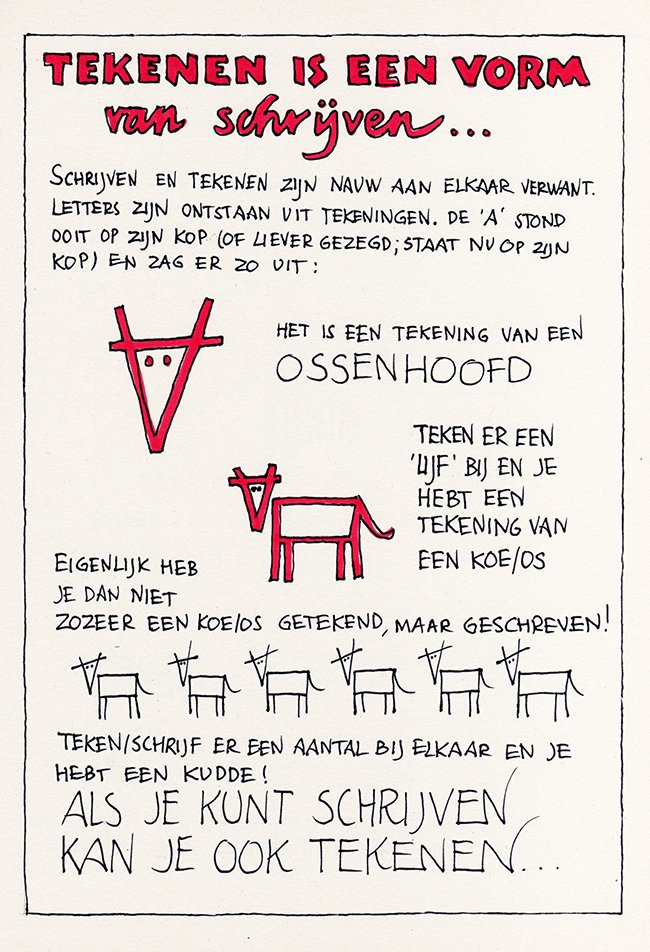 TEKENEN IS EEN VORM
van schrijven...
SCHRIJVEN EN TEKENEN ZIJN NAUW AAN ELKAAR VERWANT.
LETTERS ZIJN ONTSTAAN UIT TEKENINGEN. DE 'A' STOND
OOIT OP ZIJN KOP (OF LIEVER GEZEGD; STAAT NU OP ZIJN
KOP) EN ZAG ER ZO UIT:
HET IS EEN TEKENING VAN EEN
OSSENHOOFD
TEKEN ER EEN
'LIJF' BIJ EN JE
HEBT EEN
TEKENING VAN
EEN KOE/OS
EIGENLIJK HEB
JE DAN NIET
ZOZEER EEN KOE/OS GETEKEND, MAAR GESCHREVEN!
TEKEN/SCHRIJF ER EEN AANTAL BIJ ELKAAR EN JE
HEBT EEN KUDDE!
ALS JE KUNT SCHRIJVEN
KAN JE OOK TEKENEN...